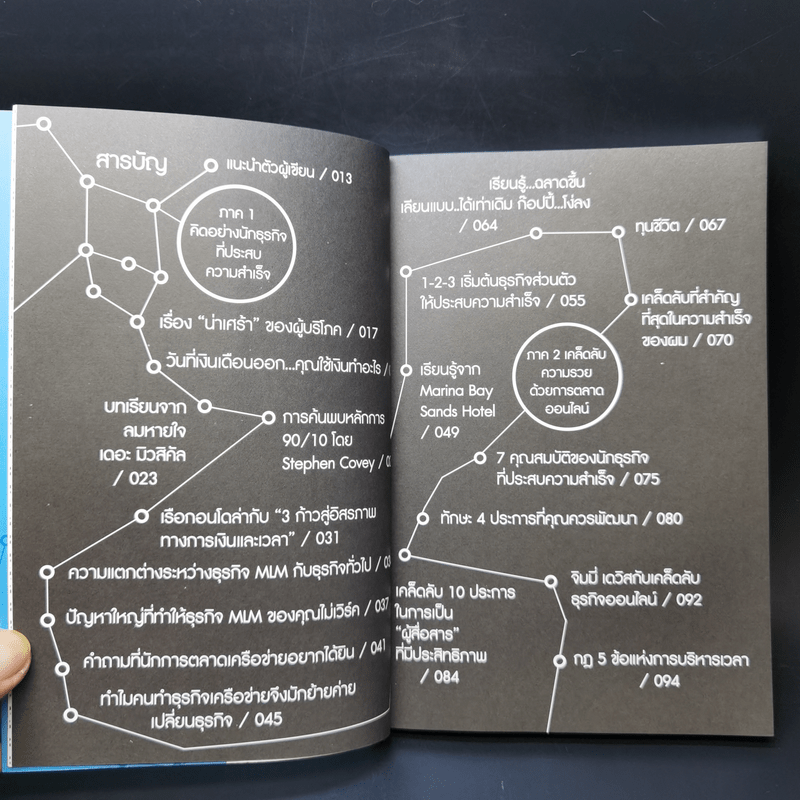 สารบัญ
แนะนำตัวผู้เขียน / 013
ภาค 1
คิดอย่างนักธุรกิจ
ที่ประสบ
ความสำเร็จ
เรื่อง “น่าเศร้า” ของผู้บริโภค / 017
วันที่เงินเดือนออก...คุณใช้เงินทำอะไร /
บทเรียนจาก
ลมหายใจ
เดอะ มิวสิคัล
/ 023
การค้นพบหลักการ
90/10 โดย
Stephen Covey /
เรือกอนโดล่ากับ “3 ก้าวสู่อิสรภาพ
ทางการเงินและเวลา” / 031
ความแตกต่างระหว่างธุรกิจ MLM กับธุรกิจทั่วไป /
ปัญหาใหญ่ที่ทำให้ธุรกิจ MLM ของคุณไม่เวิร์ค / 037
คำถามที่นักการตลาดเครือข่ายอยากได้ยิน / 041
ทำไมคนทำธุรกิจเครือข่ายจึงมักย้ายค่าย
เปลี่ยนธุรกิจ / 045
เรียนรู้...ฉลาดขึ้น
เลียนแบบ..ได้เท่าเดิม ก๊อปปี้...โง่ลง
/ 064
ทุนชีวิต / 067
1-2-3 เริ่มต้นธุรกิจส่วนตัว
ให้ประสบความสำเร็จ / 055
เคล็ดลับที่สำคัญ
ที่สุดในความสำเร็จ
ของผม / 070
เรียนรู้จาก
Marina Bay
Sands Hotel
/ 049
ภาค 2 เคล็ดลับ
ความรวย
ด้วยการตลาด
ออนไลน์
7 คุณสมบัติของนักธุรกิจ
ที่ประสบความสำเร็จ / 075
ทักษะ 4 ประการที่คุณควรพัฒนา / 080
เคล็ดลับ 10 ประการ
ในการเป็น
“ผู้สื่อสาร”
ที่มีประสิทธิภาพ
/ 084
จิมมี่ เดวิสกับเคล็ดลับ
ธุรกิจออนไลน์ / 092
กฎ 5 ข้อแห่งการบริหารเวลา
/ 094